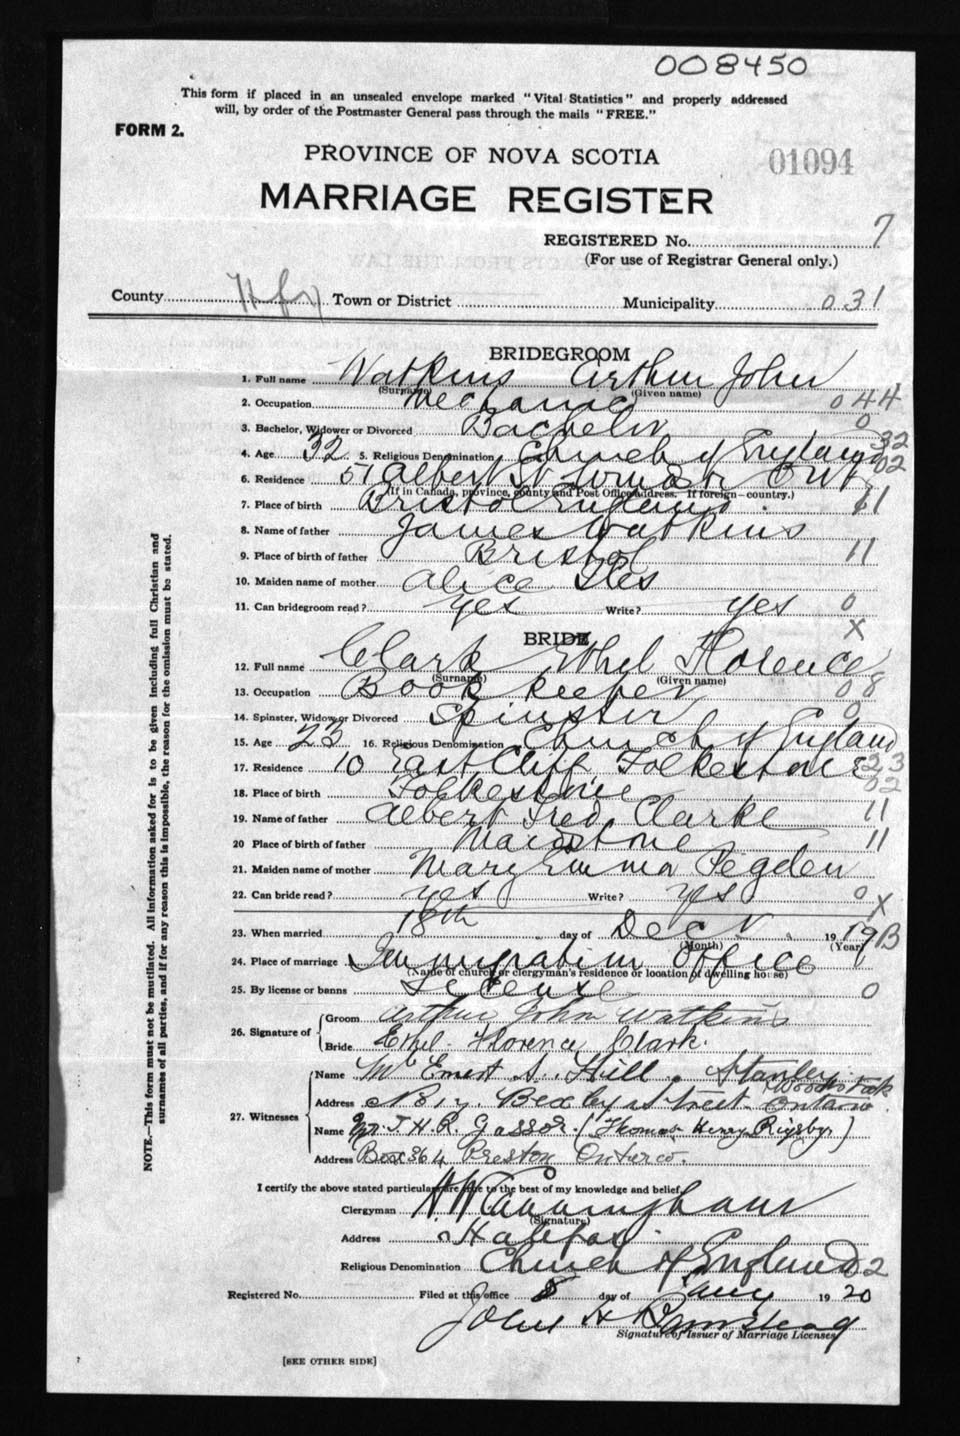 008450
This form if placed in an unsealed envelope marked "Vital Statistics" and properly addressed
will, by order of the Postmaster General pass through the mails "FREE."
FORM 2.
PROVINCE OF NOVA SCOTIA
01094
MARRIAGE REGISTER
REGISTERED No. 7
(For use of Registrar General only.)
County Hfx Town or District Municipality 031
BRIDEGROOM
1. Full name Watkins Arthur John
(Surname) (Given name)
2. Occupation Mechanic 044
3. Bachelor, Widower or Divorced Bachelor 0
4. Age 32 5. Religious Denomination Church of England 32
6. Residence 51 Albert St 02
(If in Canada, province, county and Post Office address. If foreign—country.)
7. Place of birth Bristol England 11
8. Name of father James Watkins
9. Place of birth of father Bristol 11
10. Maiden name of mother Alice Iles
11. Can bridegroom read? yes Write? yes 0
X
BRIDE
12. Full name Clark Ethel Florence
(Surname) (Given name)
13. Occupation Book keeper 08
14. Spinster, Widow or Divorced Spinster 0
15. Age 23 16. Religious Denomination Church of England
17. Residence 10 East Cliff Folkestone 23
18. Place of birth Folkestone 02
19. Name of father Albert Fred. Clarke 11
20 Place of birth of father Maidstone 11
21. Maiden name of mother Mary Emma Pegden
22. Can bride read? yes Write? yes 0 X
23. When married 18th day of Dec 1919 B
(Month) (Year)
24. Place of marriage Immigration Office
(Name of church or clergyman's residence or location of dwelling house)
25. By license or banns License 0
26. Signature of Groom Arthur John Watkins
Bride Ethel Florence Clark.
27. Witnesses Name Mr Ernest S. Hill. Stanley
Address No 17. Bexley Street Woodstock Ontario.
Name Mr. J. H. R. Gasson. (Thomas Henry Rigsby)
Address Box 364 Preston Ontario.
I certify the above stated particulars are true to the best of my knowledge and belief.
Clergyman Cunningham
(Signature)
Address Halifax
Religious Denomination Church of England 02
Registered No. Filed at this office 8 day of Jany 1920
John H
Signature of Issuer of Marriage Licenses
[SEE OTHER SIDE]
NOTE.—This form must not be mutilated. All information asked for is to be given including full Christian and
surnames of all parties, and if for any reason this is impossible, the reason for the omission must be stated.